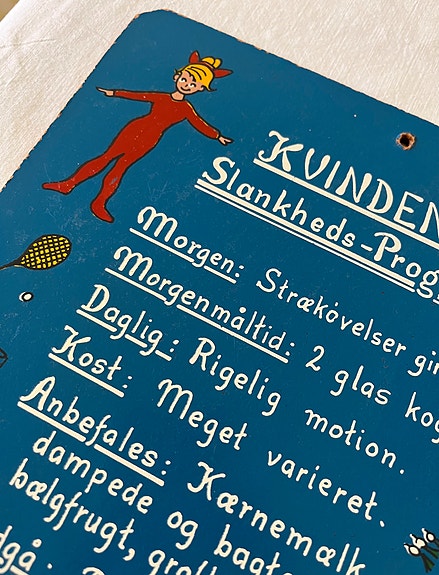 KVINDEN
Slankheds-Prog
Morgen: Strækøvelser gi
Morgenmåltid: 2 glas kog
Daglig: Rigelig motion.
Kost: Meget varieret.
Anbefales: Kærnemælk
dampede og bagt
bælgfrugt, gro